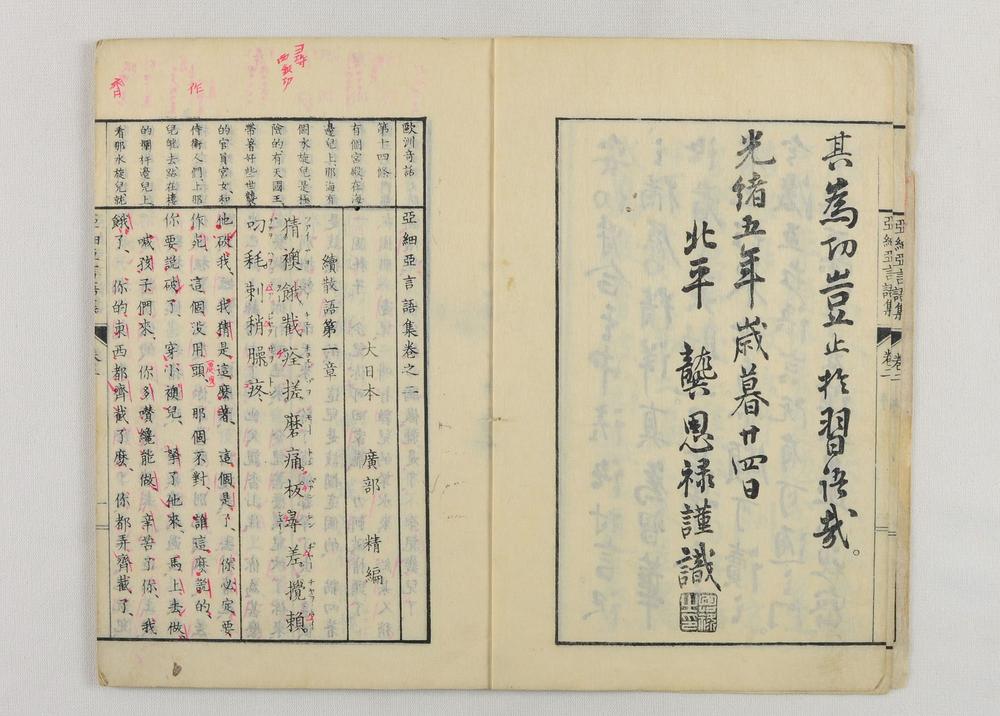 其為功豈止於習語哉。
光緒五年歲暮廿四日
北平 龔恩祿謹識
亞細亞言語集 卷二
歐洲奇話
第十四條
有個宮殿在海
邊兒上、那海有
個水旋兒、是極
險的、有天國王、
帶著好些世襲
的官員宮女、和
侍衛人們、上那
兒逛去、站在樓
的欄杆邊兒上、
看那水旋兒、就
亞細亞言語集卷之二
大日本 廣部 精編
續散語第一章
猜襖餓戳痊搓磨痛板尋差攪賴
叨耗剌稍臊疼
他破我、我猜是這麼著、這個是了、你必定要
你光、這個沒用頭、那個不對、誰這麼說的、
你要說破了、穿小襖兒、拏了他來、馬上去做、
喊孩子們來、你多嚐纔能做、辛苦了你、我
餓了、你的東西都齊截了麼、你都弄齊截了、
齊
作
尋